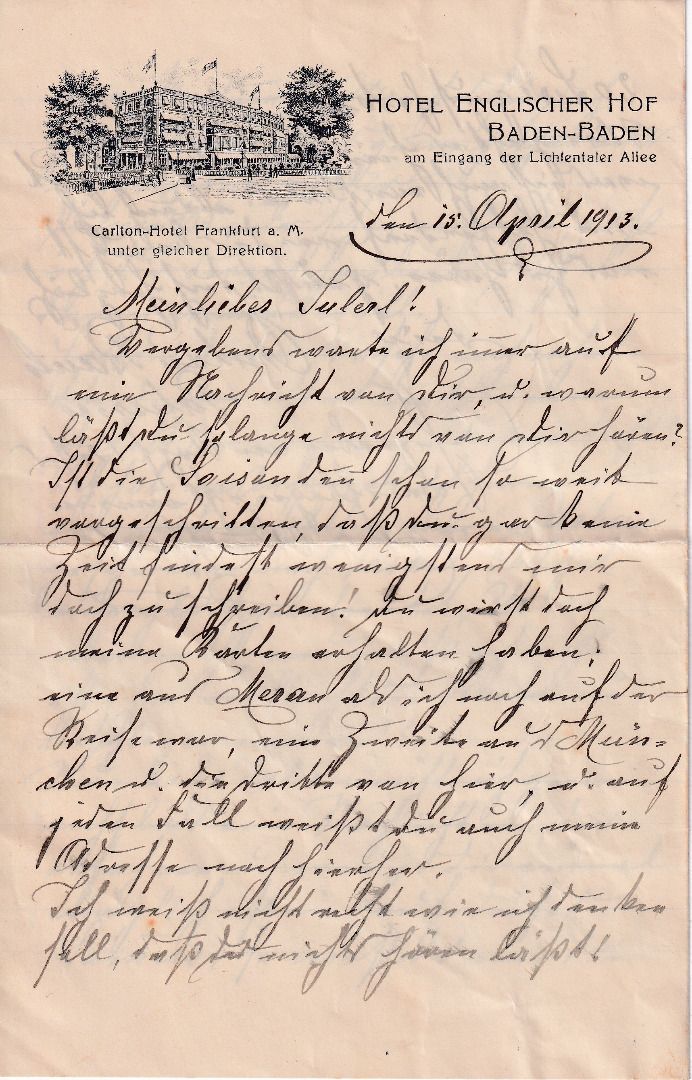 HOTEL ENGLISCHER HOF
BADEN-BADEN
am Eingang der Lichtentaler Allee
Carlton-Hotel Frankfurt a. M.
unter gleicher Direktion.
den 15. April 1913.
Mein liebes Julerl!
Vergebens warte ich im̅er auf
eine Nachricht von Dir, u. warum
läßt Du solange nichts von Dir hören?
Ist die Saison den schon so weit
vorgeschritten, daß Du gar keine
Zeit findest wenigstens mir
doch zu schreiben! Du wirst doch
meine Karten erhalten haben;
eine aus Meran als ich noch auf der
Reise war, eine Zweite aus Mün-
chen u. die Dritte von hier, u. auf
jeden Fall weißt Du auch meine
Adresse nach hierher.
Ich weiß nicht recht wie ich denken
soll, daß Du nichts hören läßt!